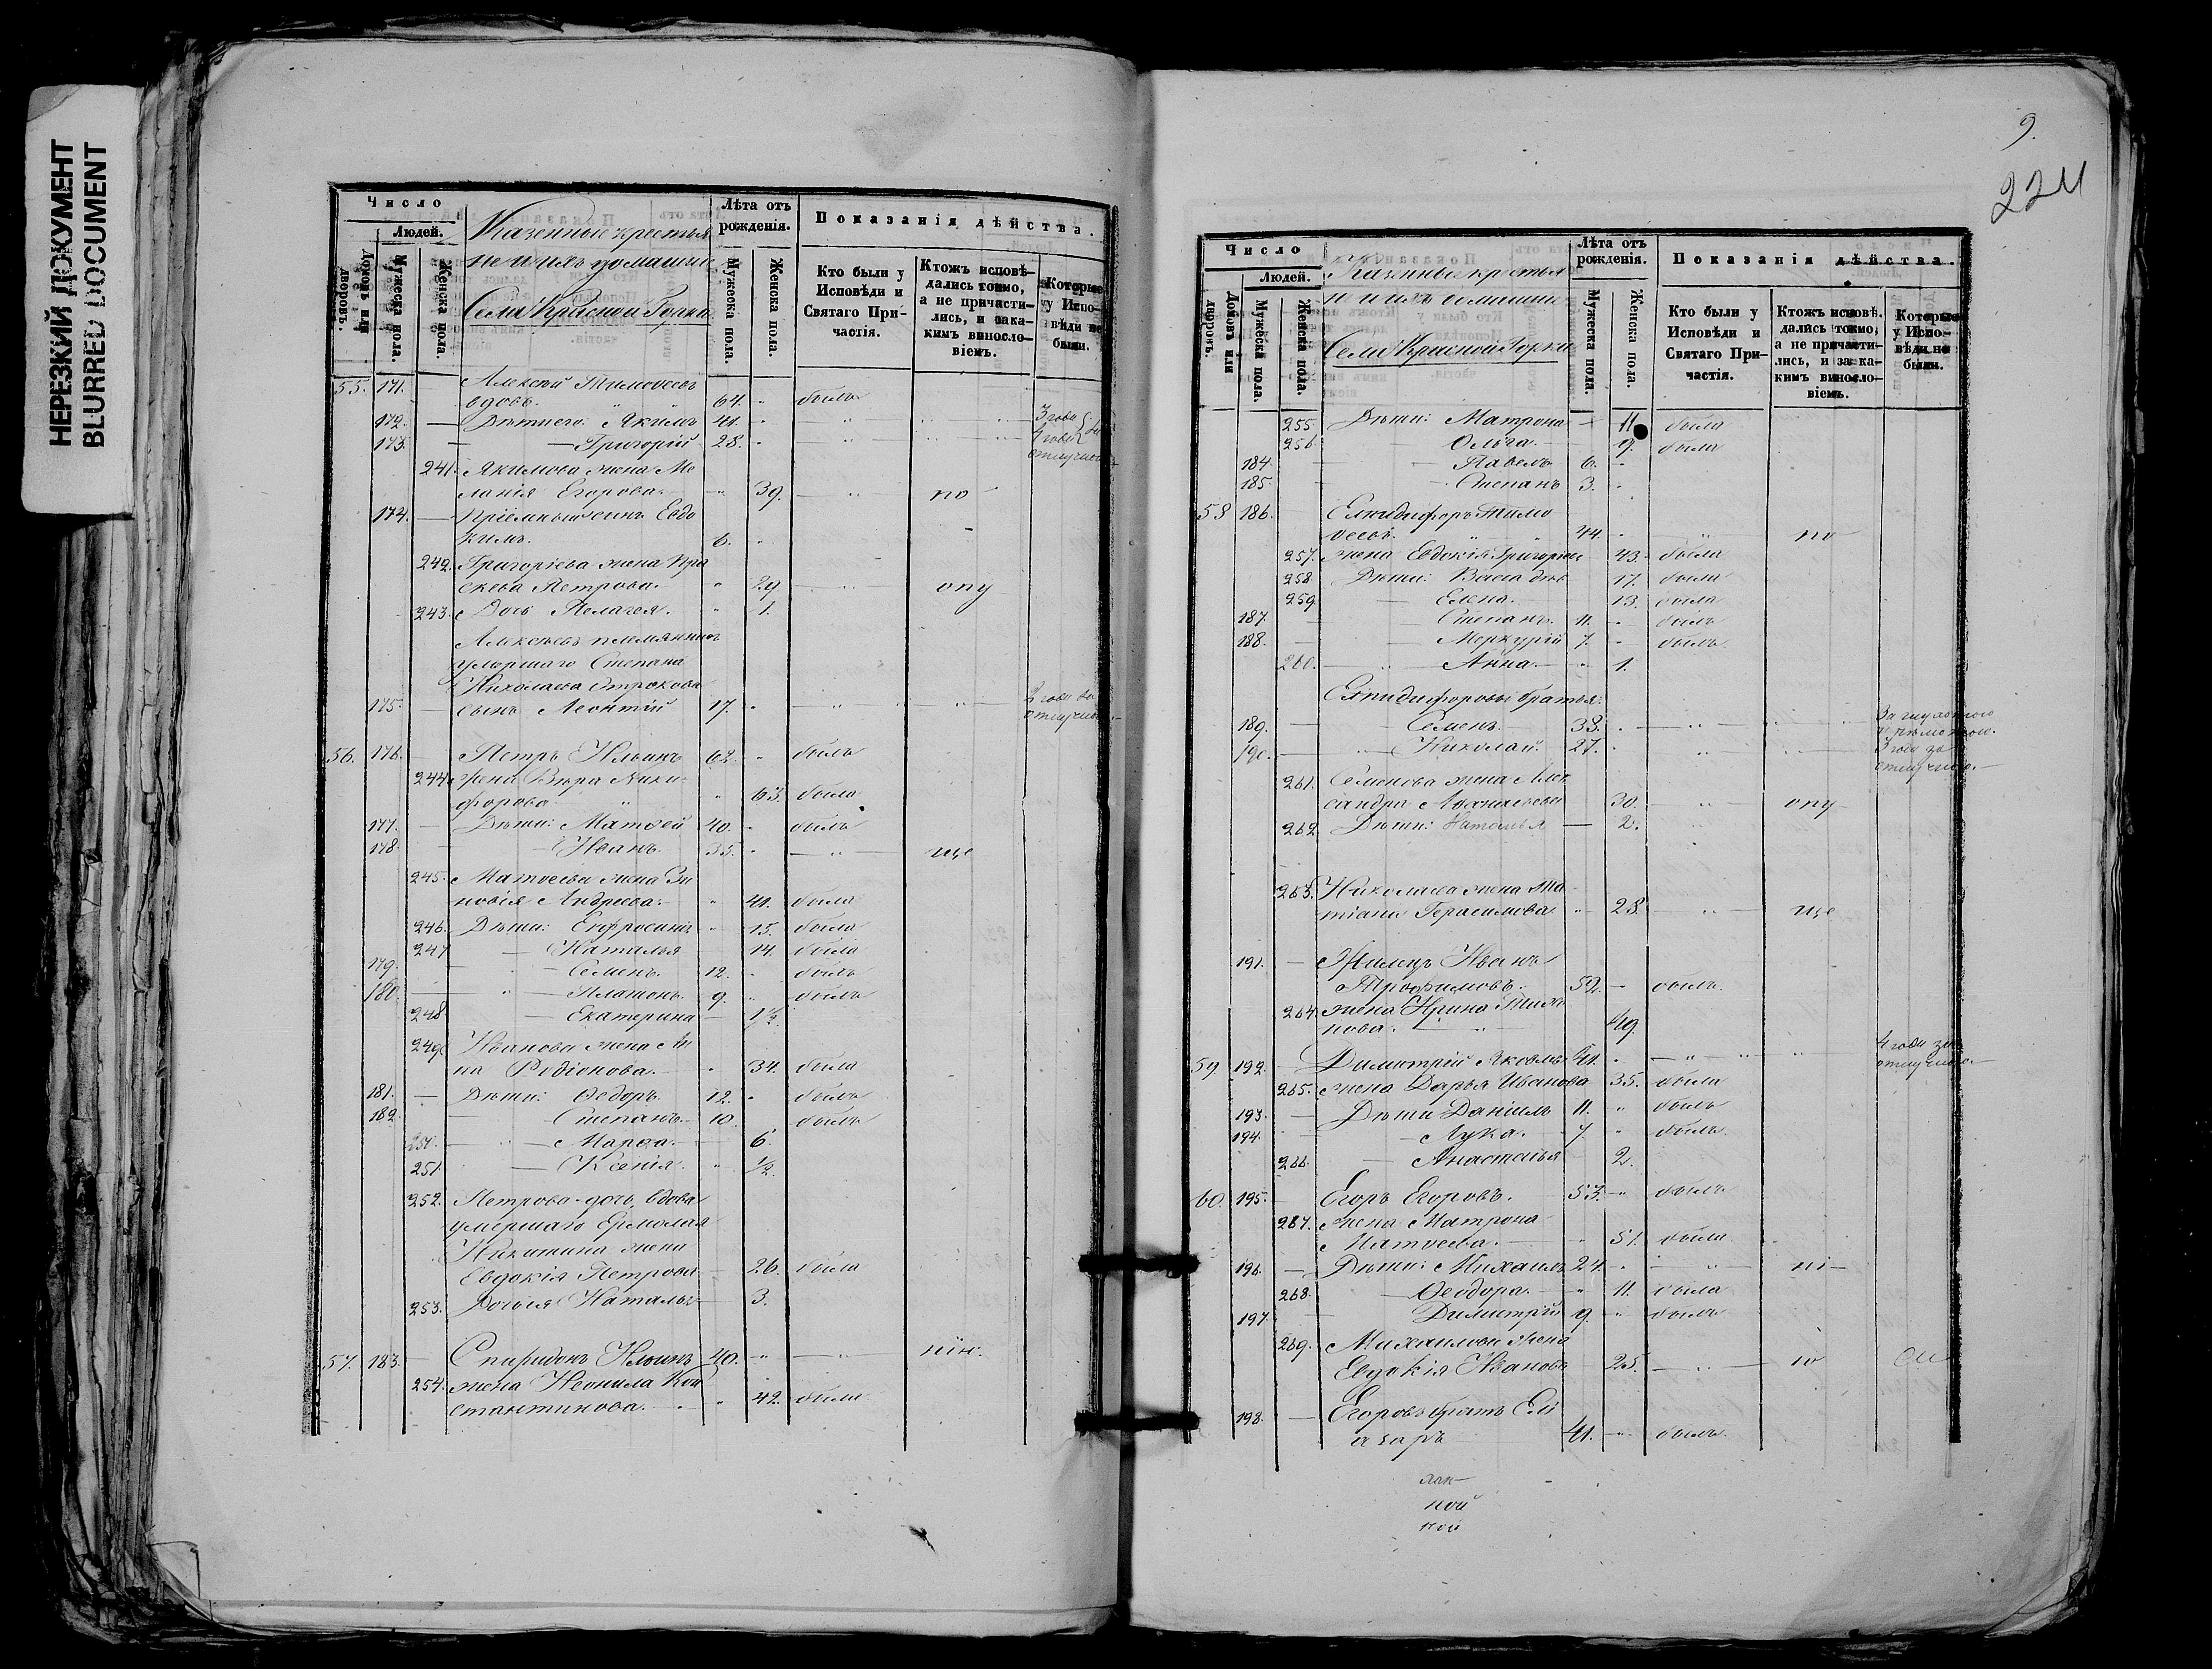 НЕРЕЗКИЙ ДОКУМЕНТ
BLURRED DOCUMENT
Число
Людей.
Домовъ или дворовъ.
Мужеска пола.
Женска пола.
Казенные крестья
не и ихъ домашніе
Села Красной Горки
Лѣта отъ рожденія.
Мужеска пола.
Женска пола.
Показанія дѣйства.
Кто были у Исповѣди и Святаго Причастія.
Ктожъ исповѣдались токмо, а не причастились, и за какимъ винословіемъ.
Которые у Исповѣди не были.
55. 171. Алексѣй Тимоѳеевъ
вдовъ. 64. " былъ
172. — Дѣти его: Якимъ 41. " 3 года
173. — Григорій 28. " 4 года
отлучкою
241. Якимова жена Ме
ланія Егорова. " 39. " по
174. — Пріемный сынъ Евдо
кимъ. 6. "
242. Григоріева жена Пра
скева Петрова. " 29 " опу
243. Дочь Пелагея. " 1.
Алексѣевъ племянникъ
умершаго Степана
Николаева
175. — сынъ Леонтій 17. " года за
отлучкою
56. 176. Петръ Ильинъ 62. " былъ
244. жена Вѣра Ники
форова " 63. была
177. — Дѣти: Матѳей 40. " былъ
178. — Иванъ. 35. " — " — ище
245. Матѳеева жена Зи
новія Андреева. " 41. была
246. Дѣти: Евфросинія " 15. была
247 — Наталья 14. была
179. — Семенъ. 12. " былъ
180. — " — Платонъ. 9. " былъ
248 — Екатерина — 1½.
249. Иванова жена Ан
на Родіонова. " 34. была
181. — Дѣти: Ѳедоръ. 12. " былъ
182. — Степанъ. 10. былъ
250. — " — Марѳа. — 6.
251. — Ксенія. " ½.
252. Петрова дочь, вдова
умершаго Ермолая
Никитина жена
Евдокія Петрова — 26. была
253. Дочь ея Наталья 3.
57. 183. — Спиридонъ Ильинъ 40. " — " —
254. жена Неонила Кон
стантинова. " 42. была
9.
224
Число
Людей.
Домовъ или дворовъ.
Мужеска пола.
Женска пола.
Казенные крестья
не и ихъ домашніе
Села Красной Горки
Лѣта отъ рожденія.
Мужеска пола.
Женска пола.
Показанія дѣйства.
Кто были у Исповѣди и Святаго Причастія.
Ктожъ исповѣдались токмо, а не причастились, и за какимъ винословіемъ.
Которые у Исповѣди не были.
255. Дѣти: Матрона — 11. была
256. Ольга. — 9. была
184. — Павелъ 6. "
185. — Степанъ 3. "
58 186. Елпидифоръ Тимо
ѳеевъ. 44. " " по
257. жена Евдокія Григорьева 43. была
258. Дѣти: 17. была
259. — Елена. 13. была
187. — Степанъ. 11. " былъ
188. — Меркурій 7. " былъ
260. — " — Анна. — " 1.
Елпидифоровы братья:
189. — Семенъ. 33. "
190. — " — Николай. 27. " 3 года за
отлучкою. —
261. Семенова жена Алек
сандра Аѳанасьева 30. — " — опу
262. Дѣти: Наталья — 2.
263. Николаева жена Та
тіана Герасимова " 28. — " — ище
191. — Иванъ
Трофимовъ. 59. — былъ.
264. жена Ирина Тиха
нова. " 49.
59. 192. — Димитрій Яковлевъ 41. " — " — 4 года за
отлучкою. —
265. жена Дарья Иванова 35. была
193. — Дѣти: Даніилъ 11. " былъ
194. — Лука. — 7. " былъ.
266. — Анастасья 2.
60. 195. — Егоръ Егоровъ. 53. " былъ
267. жена Матрона
Матѳеева. — " 51. была.
196. — Дѣти: Михаилъ 24. " — " —
268. — Ѳеодора. — " 11. была
197. Димитрій 9. — " былъ
269. Михаилова жена
Евдокія Иванова — 25. — " — по
198. — Егоровъ братъ Елі
азаръ 41. — " былъ.
ной
ной